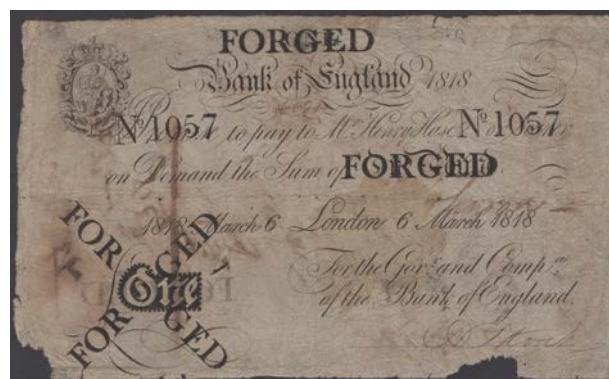 FORGED
Bank of England 1818
Nº 1057 to pay to Mr. Henry Hase Nº 1057
on Demand the Sum of FORGED
1818 March 6 London 6 March 1818
FOR GED
For the Govr. and Compa.
One
of the Bank of England.
FOR GED